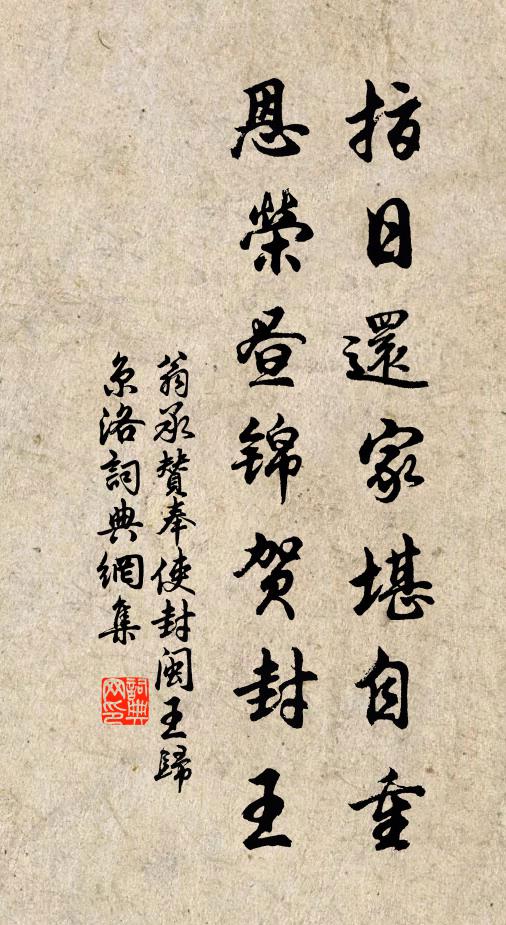 指日還家堪自重
恩榮晝錦賀封王
翁承贊奉使封閩王歸
京洛詞典網集
詞典
网印